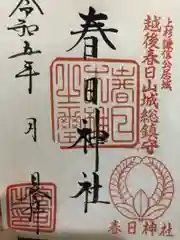 上杉謙信公居城
越後春日山城総鎮守
春日神社
令和五年 月 日
春日神社